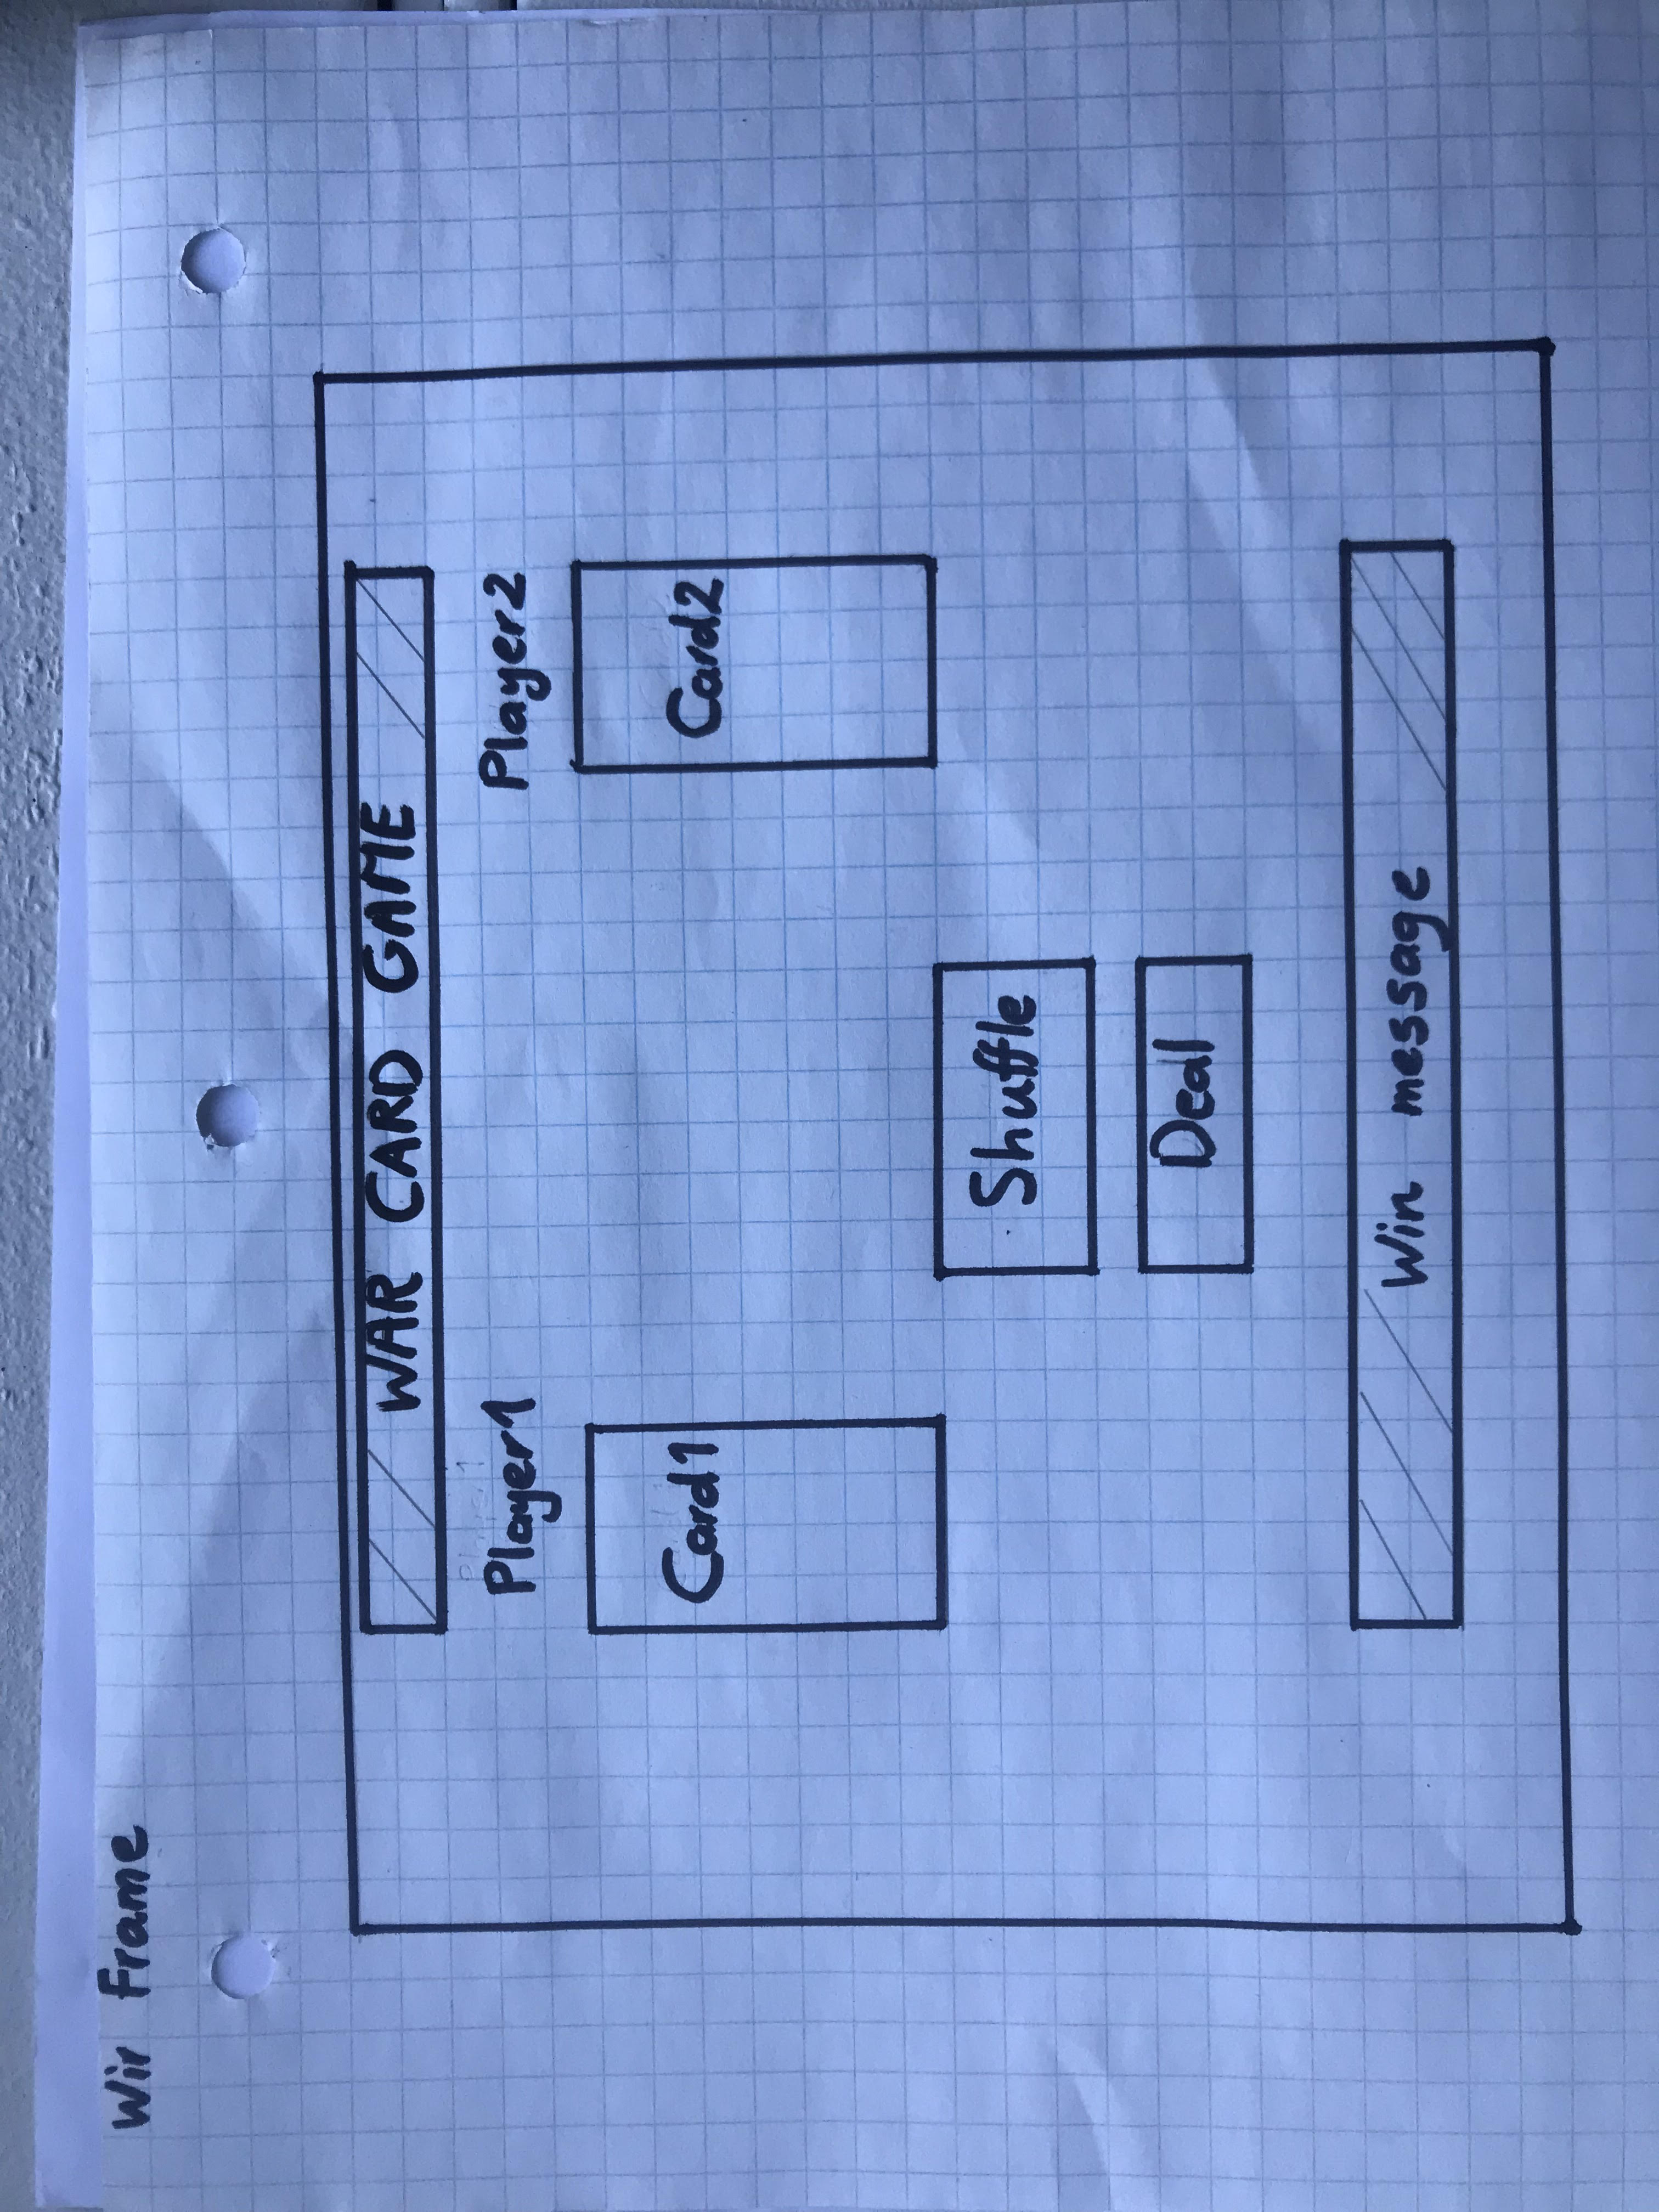 Wir Frame
WAR CARD GAME
Player1 Player2
Card1 Card2
Shuffle
Deal
Win message